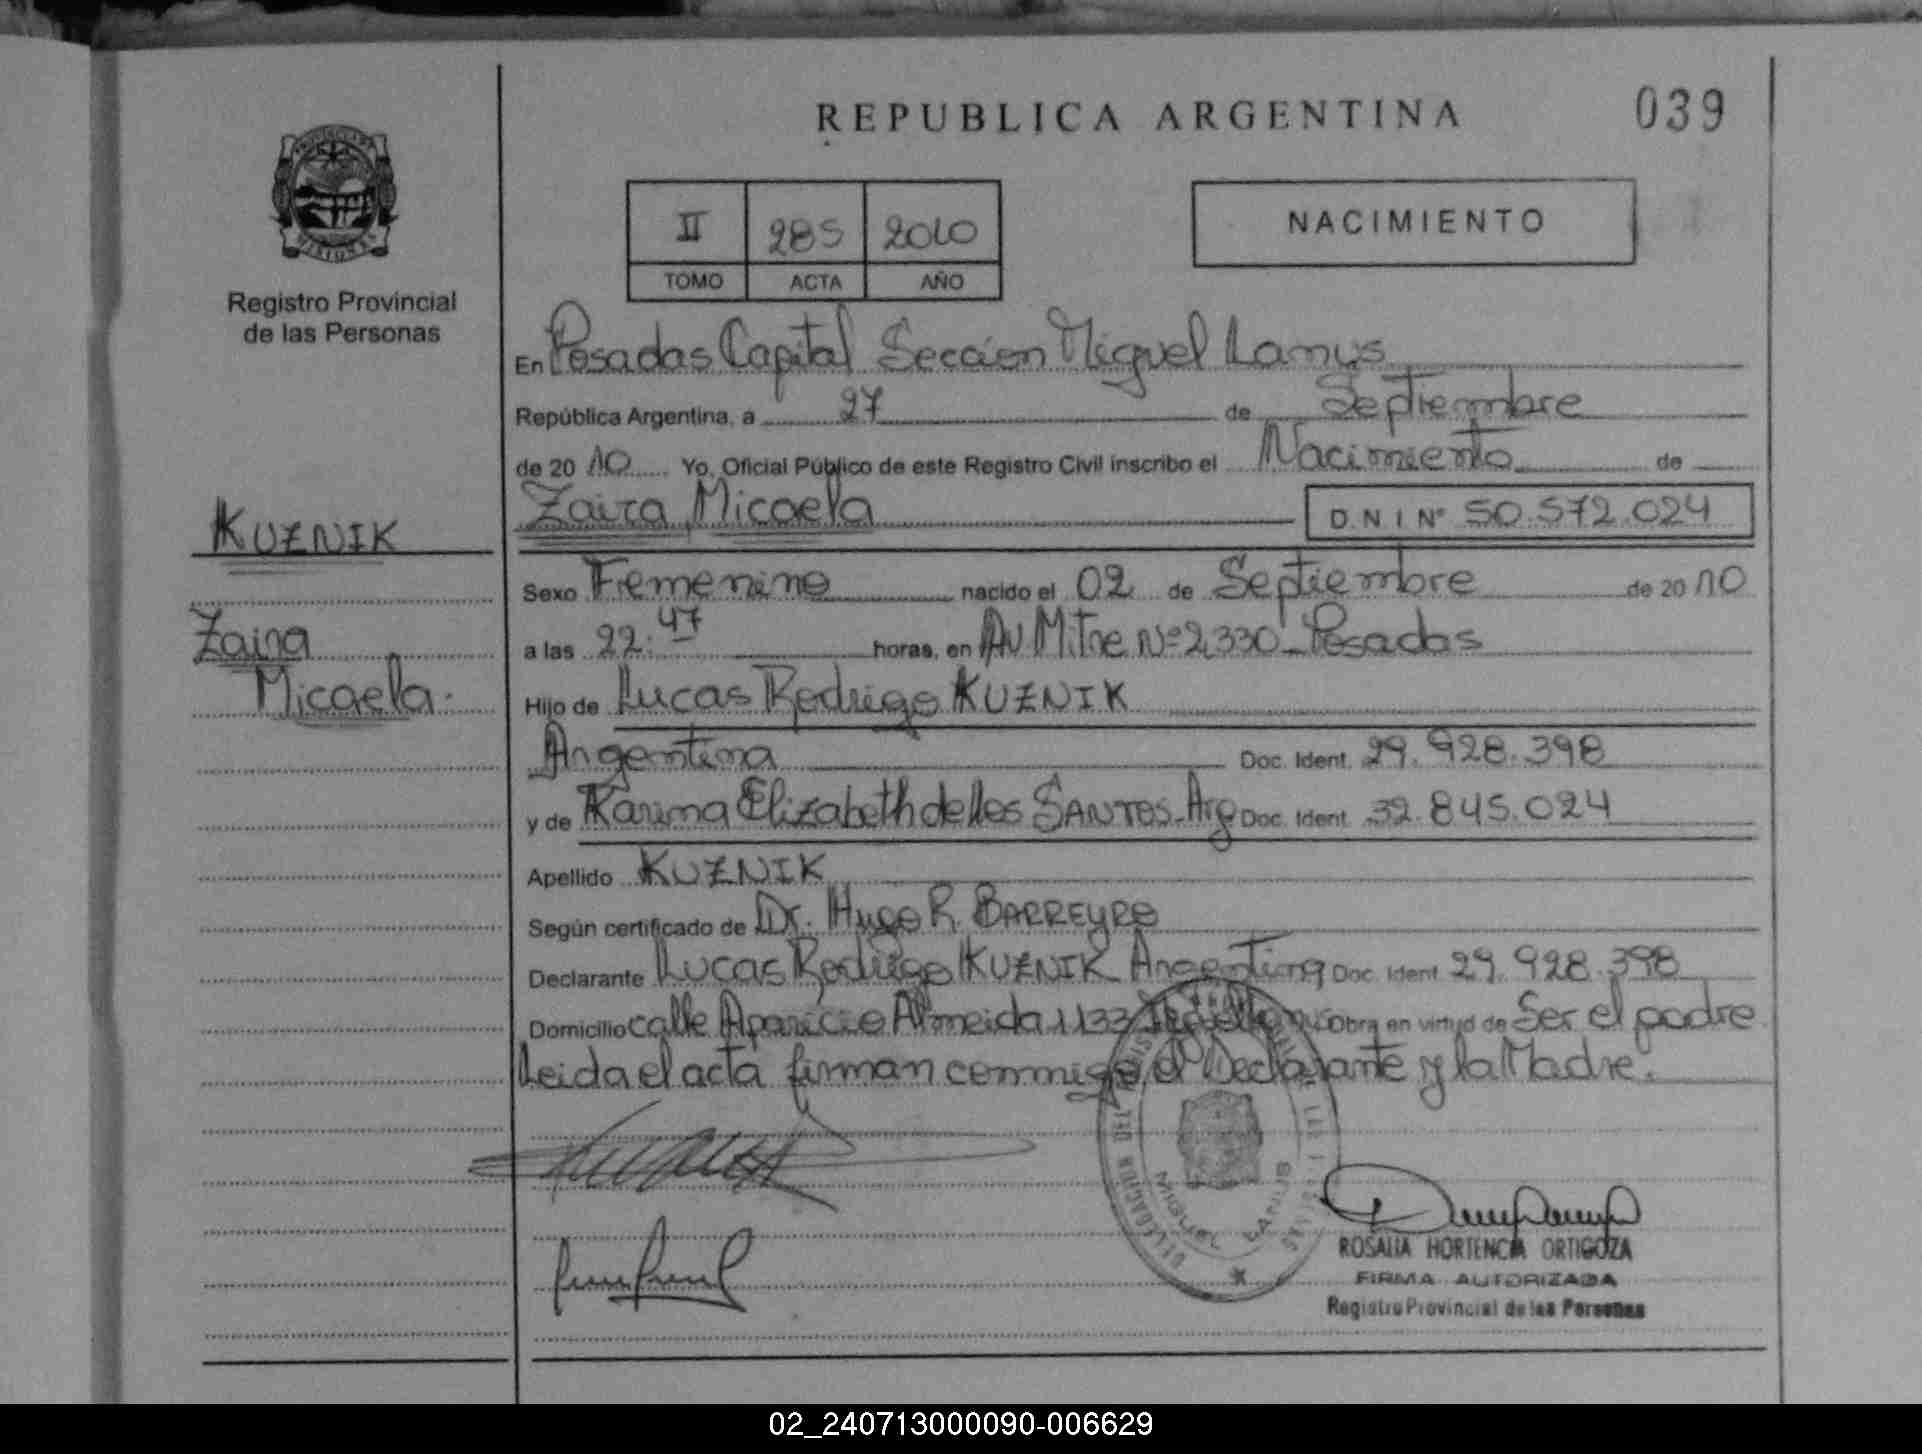 REPUBLICA ARGENTINA
039
PROVINCIA DE
MISIONES
Registro Provincial
de las Personas
II 285 2010
TOMO ACTA AÑO
NACIMIENTO
En Posadas Capital Sección Miguel Lanus
República Argentina, a 27 de Septiembre
de 20 10 Yo, Oficial Público de este Registro Civil inscribo el Nacimiento de
Zaira Micaela D.N.I Nº 50.572.024
KUZNIK
Zaira
Micaela.
Sexo Femenino nacido el 02 de Septiembre de 20 10
a las 22:47 horas, en Av Mitre Nº 2.330 - Posadas
Hijo de Lucas Rodrigo KUZNIK
Argentina Doc. Ident. 29.928.398
y de Karina Elizabeth de los SANTOS - Arg Doc. Ident. 32.845.024
Apellido KUZNIK
Según certificado de Dr. Hugo R. BARREYRO
Declarante Lucas Rodrigo KUZNIK Argentina Doc. Ident. 29.928.398
Domicilio calle Aparicio Almeida 1133 Obra en virtud de Ser el padre
Leida el acta firman conmigo, el Declarante y la Madre.
DELEGACION DEL REGISTRO
MIGUEL LANUS
ROSALIA HORTENCIA ORTIGOZA
FIRMA AUTORIZADA
Registro Provincial de las Personas
02_240713000090-006629